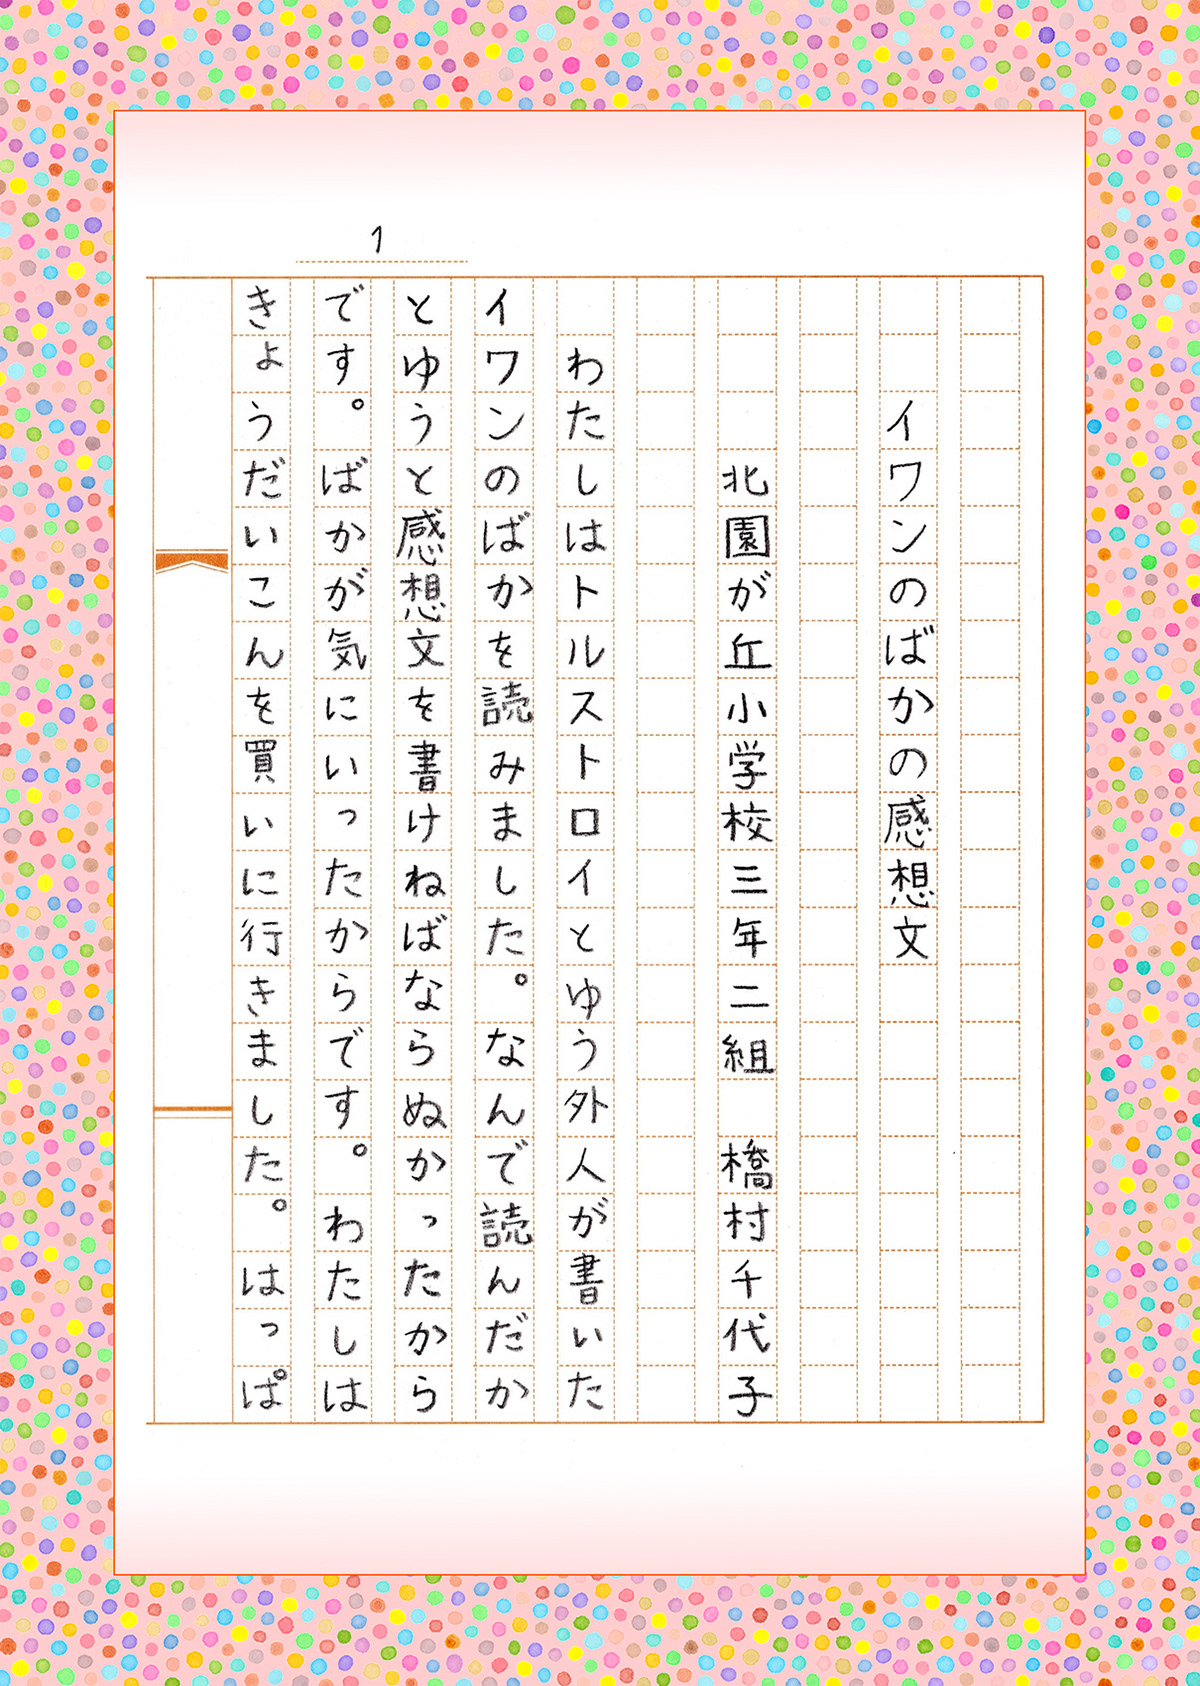 1
イワンのばかの感想文
北園が丘小学校三年二組　橋村千代子
わたしはトルストロイとゆう外人が書いた
イワンのばかを読みました。なんで読んだか
とゆうと感想文を書けねばならぬかったから
です。ばかが気にいったからです。わたしは
きょうだいこんを買いに行きました。はっぱ